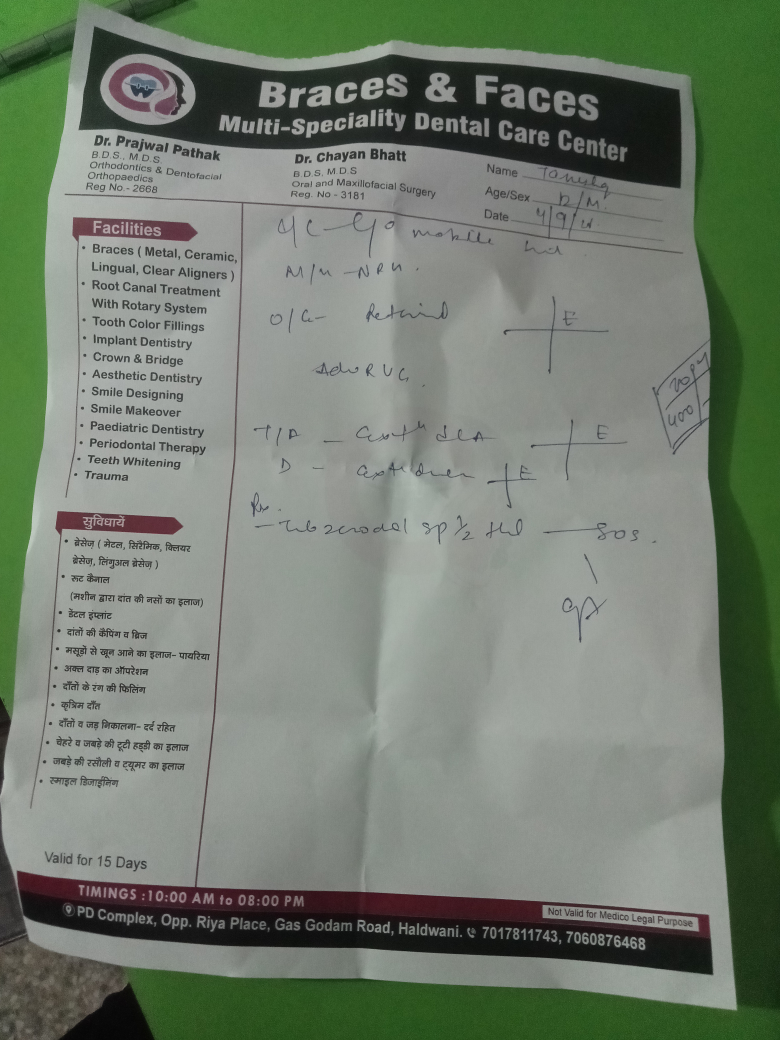 Braces & Faces
Multi-Speciality Dental Care Center
Dr. Prajwal Pathak
B.D.S., M.D.S.
Orthodontics & Dentofacial
Orthopaedics
Reg No.- 2668
Dr. Chayan Bhatt
B.D.S, M.D.S
Oral and Maxillofacial Surgery
Reg. No - 3181
Name
Age/Sex 12/M
Date 4/9/
Facilities
• Braces ( Metal, Ceramic,
Lingual, Clear Aligners )
• Root Canal Treatment
With Rotary System
• Tooth Color Fillings
• Implant Dentistry
• Crown & Bridge
• Aesthetic Dentistry
• Smile Designing
• Smile Makeover
• Paediatric Dentistry
• Periodontal Therapy
• Teeth Whitening
• Trauma
सुविधायें
• ब्रेसेज़ ( मेटल, सिरैमिक, क्लियर
ब्रेसेज़, लिंगुअल ब्रेसेज़ )
• रूट कैनाल
(मशीन द्वारा दांत की नसों का इलाज)
• डेंटल इंप्लांट
• दांतों की कैपिंग व ब्रिज
• मसूड़ों से खून आने का इलाज- पायरिया
• अक्ल दाड़ का ऑपरेशन
• दाँतों के रंग की फिलिंग
• कृत्रिम दाँत
• दाँतो व जड़ निकालना- दर्द रहित
• चेहरे व जबड़े की टूटी हड्डी का इलाज
• जबड़े की रसौली व ट्यूमर का इलाज
• स्माइल डिजाईनिंग
C/C - mobile
M/H - NRH.
O/E - Retained E
Adv RVG.
T/P - E
D - E
Rx.
- SOS.
400
Valid for 15 Days
TIMINGS :10:00 AM to 08:00 PM
Not Valid for Medico Legal Purpose
PD Complex, Opp. Riya Place, Gas Godam Road, Haldwani. 7017811743, 7060876468